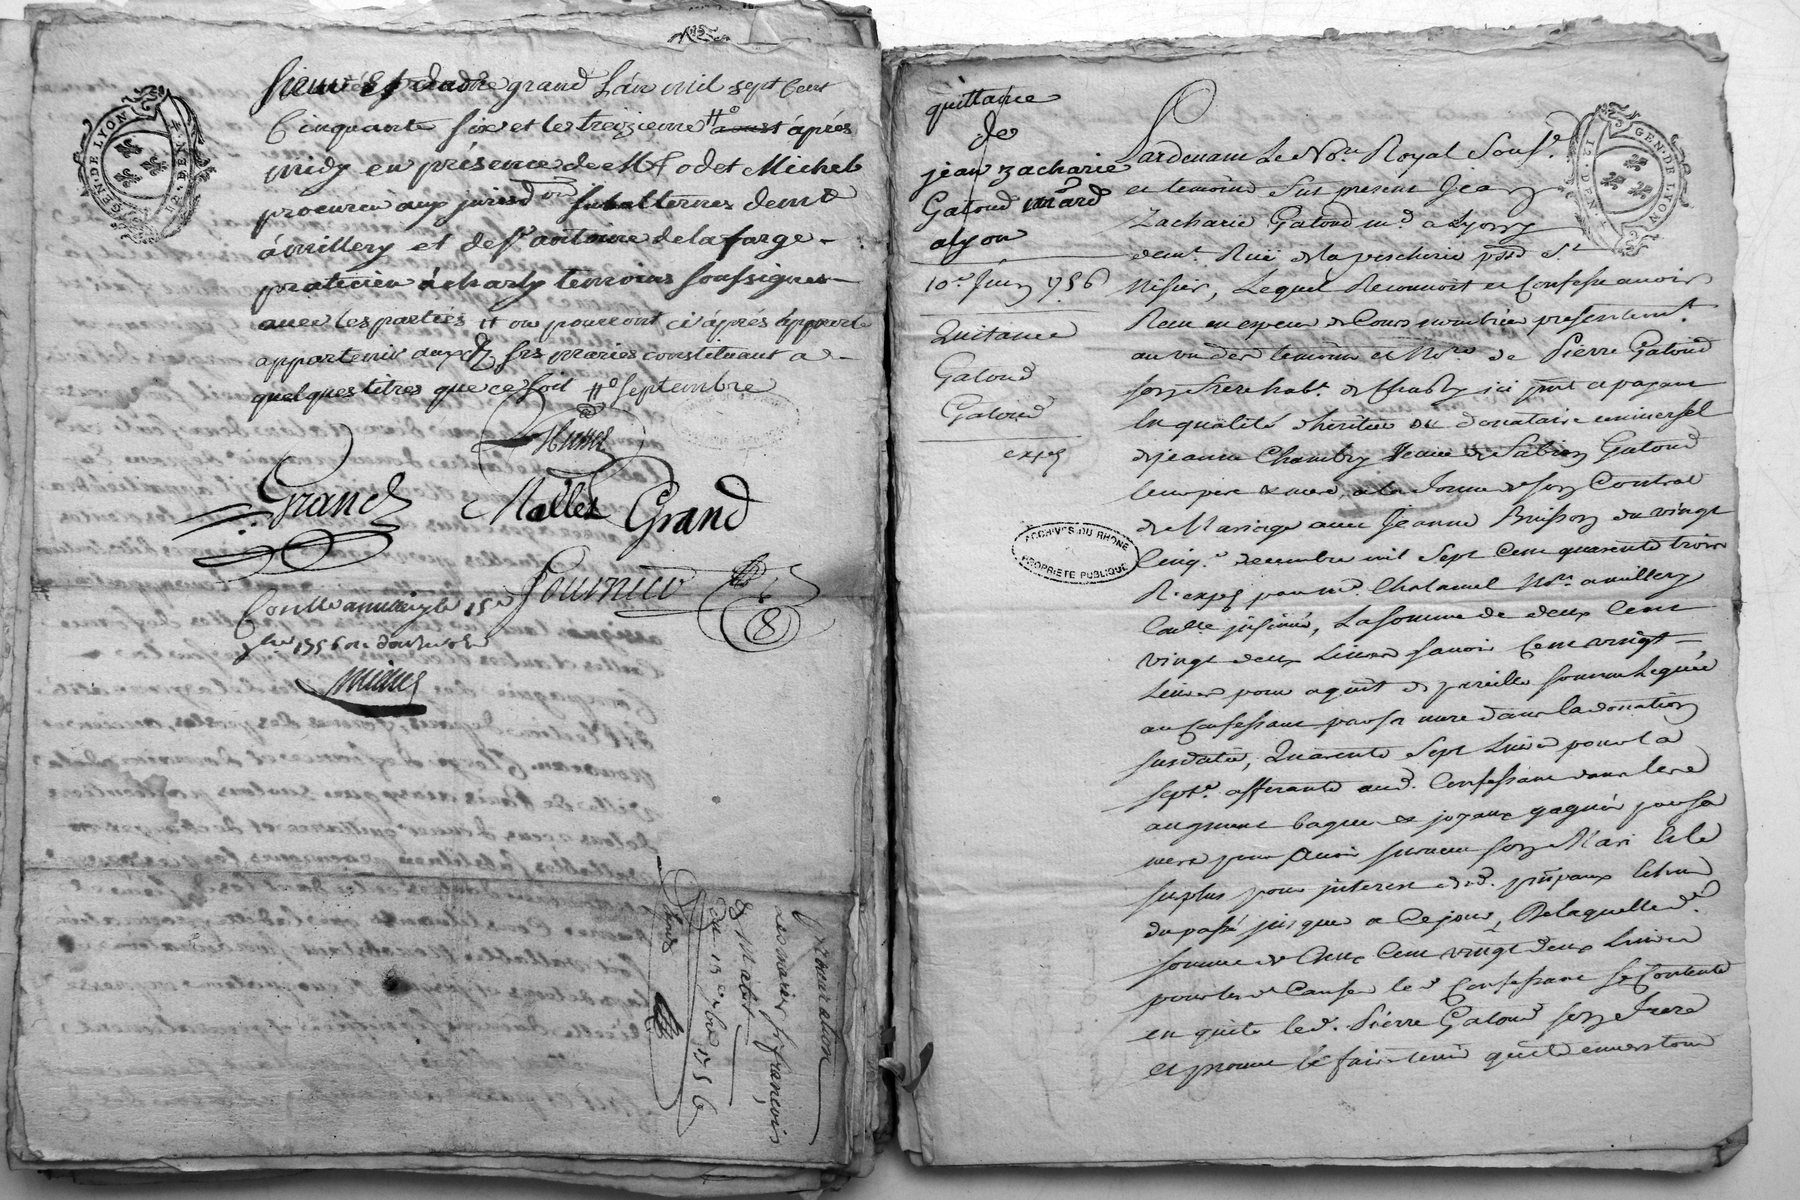 GEN·DE·LYON
grand L'an mil sept Cent
Cinquante six et le treizieme aoust après
midy en présence de Me odet Michel
procureu aux jurisd.ons subalternes demt
à millery et de Sr. antoine delafarge
praticien à charly temoins soussignes
avec les parties
appartenir auxd. srs maries constituant a
quelques titres que ce soit septembre
Grand Mallet Grand
Fournier
Controllé a millery le 15e
7bre 1756
procuration
des maries sr. françois
& Mallet
Du 13 7bre 1756
quittance
de
jean zacharie
Gatoud mard
a lyon
10e Juin 1756
Quitance
Gatoud
Gatoud
expé
ARCHIVES DU RHONE
PROPRIETE PUBLIQUE
GEN·DE·LYON
Pardevant Le No.re Royal Sous.é
et temoins fut present Jean
Zacharie Gatoud m.d a Lyon
demt. Ruë de la pescherie parr. St
Nisier, Lequel Reconnoit et Confesse avoir
Receu en especes de Cours nombrées presentemt.
au vu des temoins et No.re de Pierre Gatoud
son frere habt. de Charly ici pnt et payant
En qualité d'heritier et donataire universel
de jeanne Chambry Veuve de Gatoud
leurs pere & mere, a la forme de son Contrat
de Mariage avec Jeanne Buisson du vingt
Cinq.e decembre mil Sept Cent quarente trois
No.re a millery
Conlle. jnsinué, La somme de deux Cent
vingt deux Livres savoir Cent vingt
Livres pour aquit de pareille somme Leguée
au Confessant par sa mere dans la donation
susdatée, Quarente Sept Livres pour la
sept.e afferante aud. Confessant dans les
augment bagues & joyaux gagnés par sa
mere pour avoir survecu son Mari Et le
surplus pour jnterest
du passé jusques a Ce jour, De laquelle d.
somme de deux Cent vingt deux Livres
pour les d. Causes le d. Confessant se Contente
en quite led. Pierre Gatoud son frere
et promet le faire tenir quite envers tous